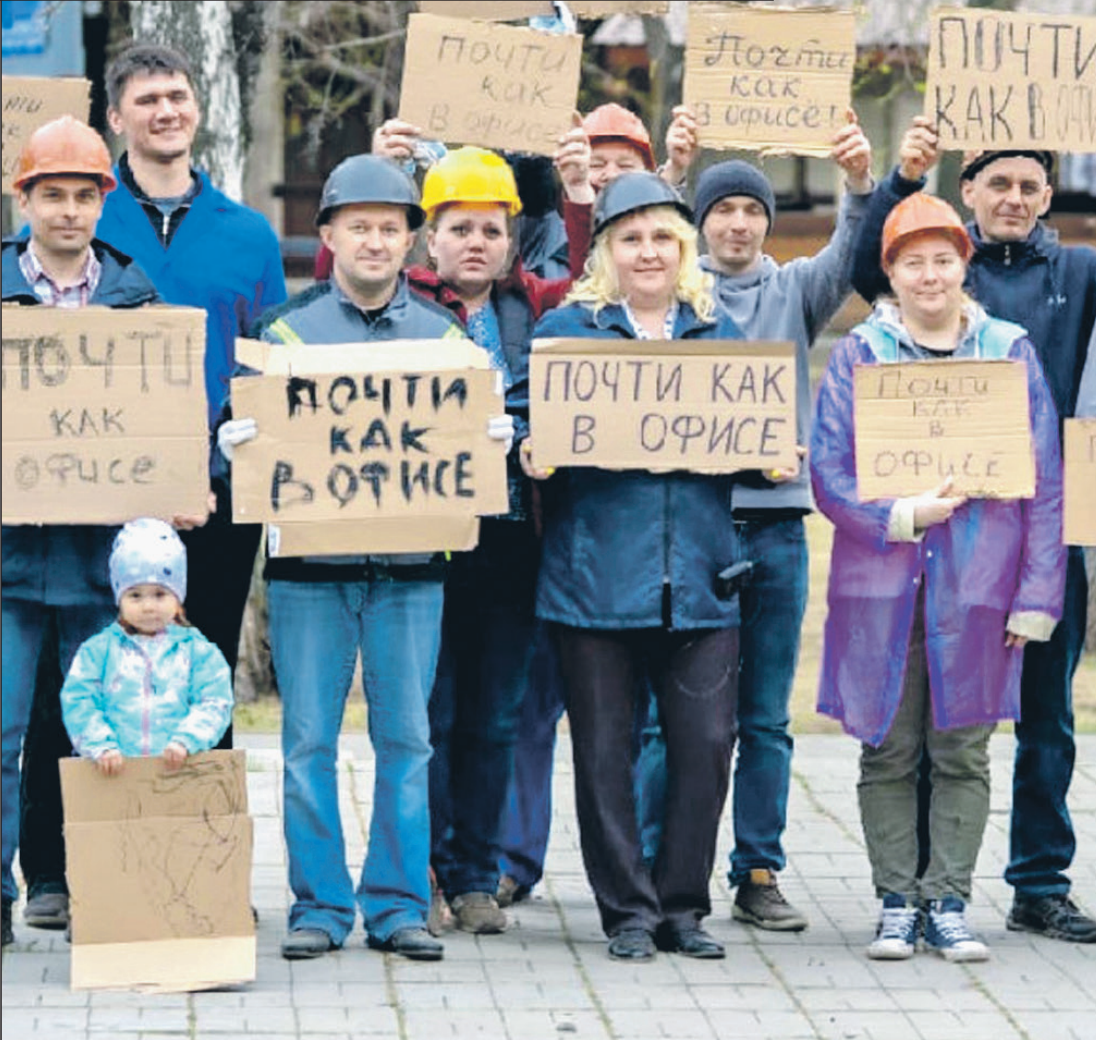 Почти
как
в офисе
Почти
как
в офисе!
ПОЧТИ
КАК В ОФИ
ПОЧТИ
КАК
ОФИСЕ
ПОЧТИ
КАК
В ОФИСЕ
ПОЧТИ КАК
В ОФИСЕ
ПОЧТИ
КАК
В
ОФИСЕ